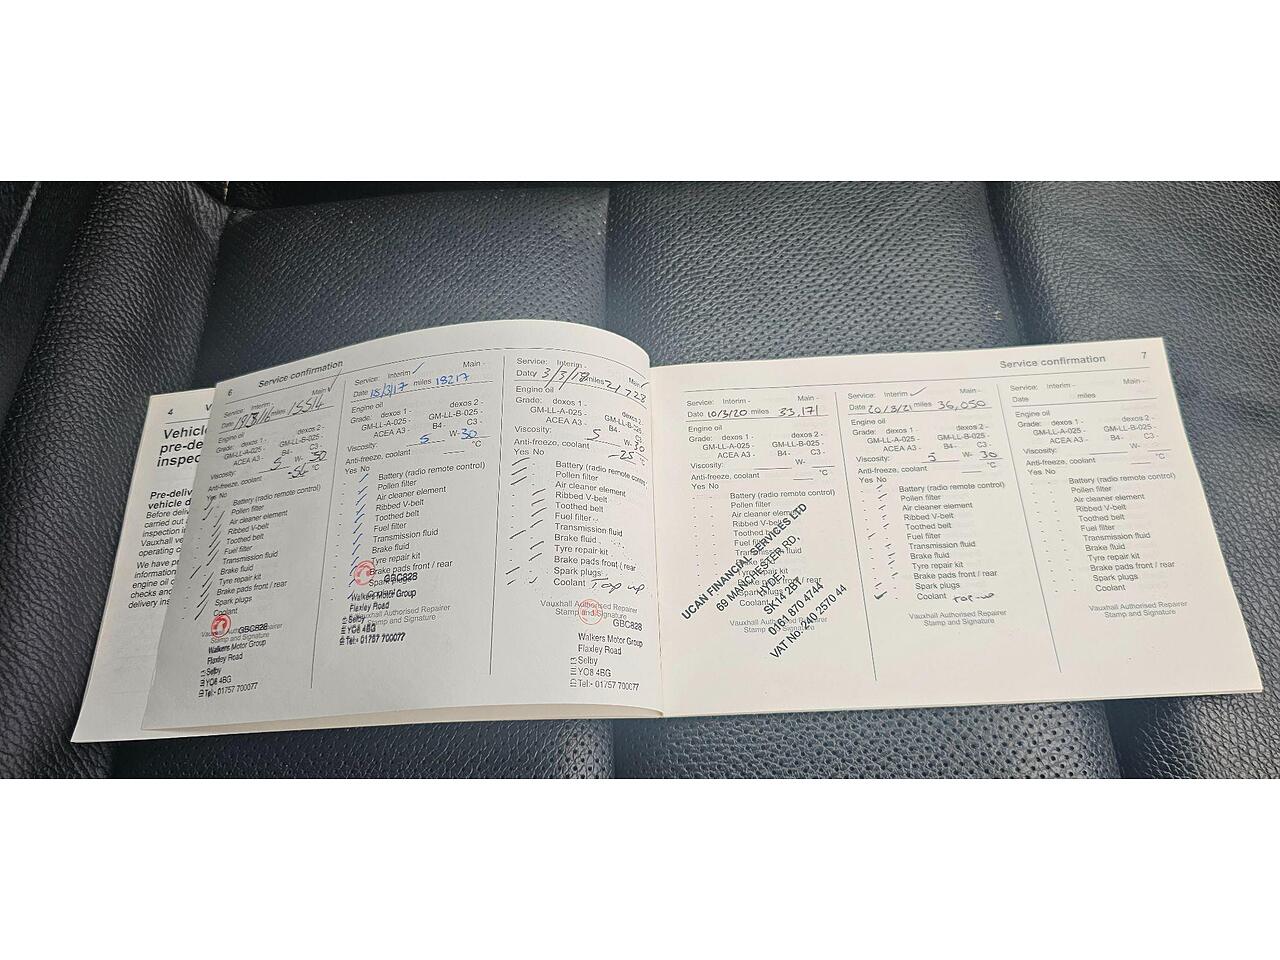 4
Vehicle
pre-de
inspec
Pre-deliv
vehicle d
Before deliv
carried out
inspection i
Vauxhall ve
operating c
We have pr
information
engine oil c
checks and
delivery ins
6
Service confirmation
Service: Interim -
Main ✓
Date
miles
Engine oil
Grade: dexos 1 - dexos 2 -
GM-LL-A-025 - GM-LL-B-025 -
ACEA A3 - B4 - C3 -
Viscosity: 5 W- 30
Anti-freeze, coolant °C
Yes No
Battery (radio remote control)
Pollen filter
Air cleaner element
Ribbed V-belt
Toothed belt
Fuel filter
Transmission fluid
Brake fluid
Tyre repair kit
Brake pads front / rear
Spark plugs
Coolant
GBC828
Vauxhall Authorised Repairer
Stamp and Signature
Walkers Motor Group
Flaxley Road
Selby
YO8 4BG
Tel:- 01757 700077
Service: Interim ✓ Main -
Date 18/3/17 miles 18217
Engine oil
Grade: dexos 1 - dexos 2 -
GM-LL-A-025 - GM-LL-B-025 -
ACEA A3 - B4 - C3 -
Viscosity: 5 W- 30
Anti-freeze, coolant °C
Yes No
Battery (radio remote control)
Pollen filter
Air cleaner element
Ribbed V-belt
Toothed belt
Fuel filter
Transmission fluid
Brake fluid
Tyre repair kit
Brake pads front / rear
Spark plugs
Coolant
GBC828
Walkers Motor Group
Flaxley Road
Vauxhall Authorised Repairer
Stamp and Signature
Selby
YO8 4BG
Tel:- 01757 700077
Service: Interim - Main ✓
Date 3/3/18 miles 21,728
Engine oil
Grade: dexos 1 - dexos 2 -
GM-LL-A-025 - GM-LL-B-025 -
ACEA A3 - B4 - C3 -
Viscosity: 5 W- 30
Anti-freeze, coolant -25 °C
Yes No
Battery (radio remote control)
Pollen filter
Air cleaner element
Ribbed V-belt
Toothed belt
Fuel filter
Transmission fluid
Brake fluid
Tyre repair kit
Brake pads front / rear
Spark plugs
Coolant Top up
Vauxhall Authorised Repairer
Stamp and Signature
GBC828
Walkers Motor Group
Flaxley Road
Selby
YO8 4BG
Tel:- 01757 700077
Service confirmation
7
Service: Interim - Main -
Date 10/3/20 miles 33,171
Engine oil
Grade: dexos 1 - dexos 2 -
GM-LL-A-025 - GM-LL-B-025 -
ACEA A3 - B4 - C3 -
Viscosity: W-
Anti-freeze, coolant °C
Yes No
Battery (radio remote control)
Pollen filter
Air cleaner element
Ribbed V-belt
Toothed belt
Fuel filter
Transmission fluid
Brake fluid
Tyre repair kit
Brake pads front / rear
Spark plugs
Coolant
Vauxhall Authorised Repairer
Stamp and Signature
UCAN FINANCIAL SERVICES LTD
69 MANCHESTER RD,
HYDE,
SK14 2BT
0161 870 4744
VAT No: 240 2570 44
Service: Interim ✓ Main -
Date 20/3/21 miles 36,050
Engine oil
Grade: dexos 1 - dexos 2 -
GM-LL-A-025 - GM-LL-B-025 -
ACEA A3 - B4 - C3 -
Viscosity: 5 W- 30
Anti-freeze, coolant °C
Yes No
Battery (radio remote control)
Pollen filter
Air cleaner element
Ribbed V-belt
Toothed belt
Fuel filter
Transmission fluid
Brake fluid
Tyre repair kit
Brake pads front / rear
Spark plugs
Coolant Top up
Vauxhall Authorised Repairer
Stamp and Signature
Service: Interim - Main -
Date miles
Engine oil
Grade: dexos 1 - dexos 2 -
GM-LL-A-025 - GM-LL-B-025 -
ACEA A3 - B4 - C3 -
Viscosity: W-
Anti-freeze, coolant °C
Yes No
Battery (radio remote control)
Pollen filter
Air cleaner element
Ribbed V-belt
Toothed belt
Fuel filter
Transmission fluid
Brake fluid
Tyre repair kit
Brake pads front / rear
Spark plugs
Coolant
Vauxhall Authorised Repairer
Stamp and Signature